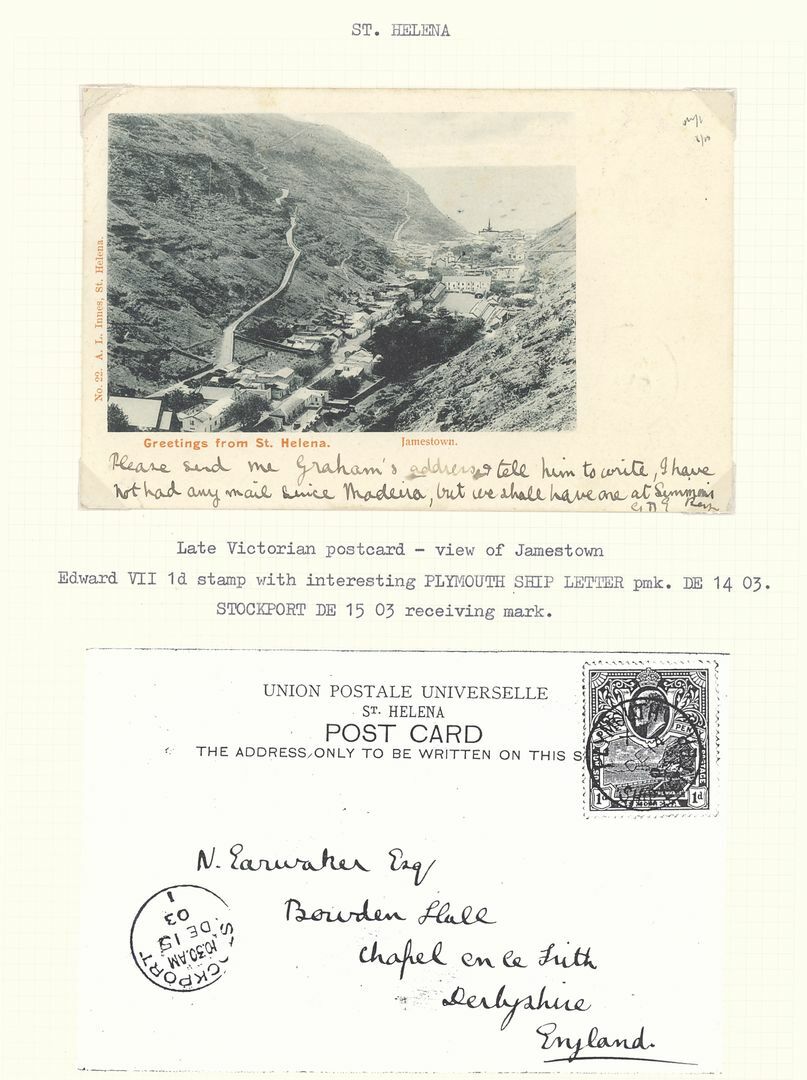 ST. HELENA
No. 22. A. L. Innes, St. Helena.
Greetings from St. Helena. Jamestown.
Please send me Graham's address & tell him to write, I have
not had any mail since Madeira, but we shall have one at Simmons
Late Victorian postcard - view of Jamestown
Edward VII 1d stamp with interesting PLYMOUTH SHIP LETTER pmk. DE 14 03.
STOCKPORT DE 15 03 receiving mark.
UNION POSTALE UNIVERSELLE
ST. HELENA
POST CARD
THE ADDRESS ONLY TO BE WRITTEN ON THIS S
1d 1d
N. Earwaker Esq
Bowden Hall
Chapel en le Frith
Derbyshire
England.
STOCKPORT
10.30AM
DE 15
03
1